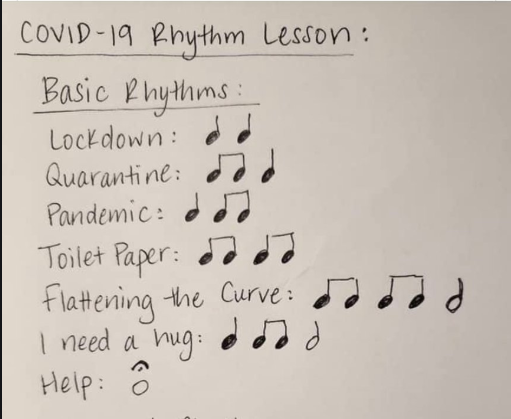 COVID-19 Rhythm Lesson:
Basic Rhythms:
Lockdown: ♩ ♩
Quarantine: ♫ ♩
Pandemic: ♩ ♫
Toilet Paper: ♫ ♫
Flattening the Curve: ♫ ♫ 𝅗𝅥
I need a hug: ♩ ♫ 𝅗𝅥
Help: 𝄐 𝅝